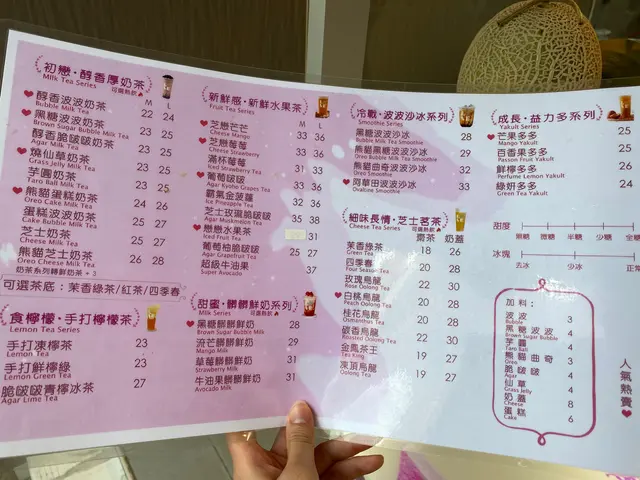 初戀·醇香厚奶茶
Milk Tea Series
可選熱飲
M L
醇香波波奶茶 22 24
Bubble Milk Tea
黑糖波波奶茶 23 25
Brown Sugar Bubble Milk Tea
醇香脆啵啵奶茶 23 25
Agar Milk Tea
燒仙草奶茶 23 25
Grass Jelly Milk Tea
芋圓奶茶 23 25
Taro Ball Milk Tea
熊貓蛋糕奶茶 24 26
Oreo Cake Milk Tea
蛋糕波波奶茶 25 27
Cake Bubble Milk Tea
芝士奶茶 25 27
Cheese Milk Tea
熊貓芝士奶茶 26 28
Oreo Cheese Milk Tea
奶茶系列轉鮮奶茶 + 3
可選茶底：茉香綠茶/紅茶/四季春
食檸檬·手打檸檬茶
Lemon Tea Series
手打凍檸茶 23
Lemon Tea
手打鮮檸綠 23
Lemon Green Tea
脆啵啵青檸冰茶 27
Agar Lime Tea
新鮮感·新鮮水果茶
Fruit Tea Series
可選熱飲
M L
芝戀芒芒 33 36
Cheese Mango
芝戀莓莓 33 36
Cheese Strawberry
滿杯莓莓 31 34
Strawberry
葡萄啵啵 33 36
Agar Kyoho Grapes Tea
霸氣金菠蘿 32 35
Ice Pineapple Tea
芝士玫瓏脆啵啵 35 38
Agar Muskmelon Tea
戀戀水果茶 31
Iced Fruit Tea
葡萄柚脆啵啵 25 27
Agar Grapefruit Tea
超級牛油果 37
Super Avocado
甜蜜·髒髒鮮奶系列
Milk Series
可選熱飲
黑糖髒髒鮮奶 28
Brown Sugar Bubble Milk
流芒髒髒鮮奶 29
Mango Milk
草莓髒髒鮮奶 31
Strawberry Milk
牛油果髒髒鮮奶 31
Avocado Milk
冷戰·波波沙冰系列
Smoothie Series
黑糖波波沙冰 28
Bubble Milk Tea Smoothie
熊貓黑糖波波沙冰 29
Oreo Bubble Milk Tea Smoothie
熊貓曲奇波波沙冰 32
Oreo Milk Tea Smoothie
阿華田波波沙冰 33
Ovaltine Smoothie
細味長情·芝士茗茶
Cheese Tea Series
可選熱飲
齋茶 奶蓋
茉香綠茶 18 26
Green Tea
四季春 20 28
Four Season Tea
玫瑰烏龍 22 30
Rose Oolong Tea
白桃烏龍 22 30
Peach Oolong Tea
桂花烏龍 20 28
Osmanthus Tea
碳香烏龍 22 30
Roasted Oolong Tea
金鳳茶王 19 27
Tea King
凍頂烏龍 19 27
Oolong Tea
成長·益力多系列
Yakult Series
芒果多多 25
Mango Yakult
百香果多多 25
Passon Fruit Yakult
鮮檸多多 26
Perfume Lemon Yakult
綠妍多多 24
Green Tea Yakult
甜度
無糖 微糖 半糖 少糖
冰塊
去冰 少冰
加料：
波波 3
Bubble
黑糖波波 4
Brown Sugar Bubble
芋圓 4
Taro Ball
熊貓曲奇 3
Oreo
脆啵啵 4
Agar
仙草 4
Grass Jelly
奶蓋 8
Cheese
蛋糕 6
Cake
人氣熱賣